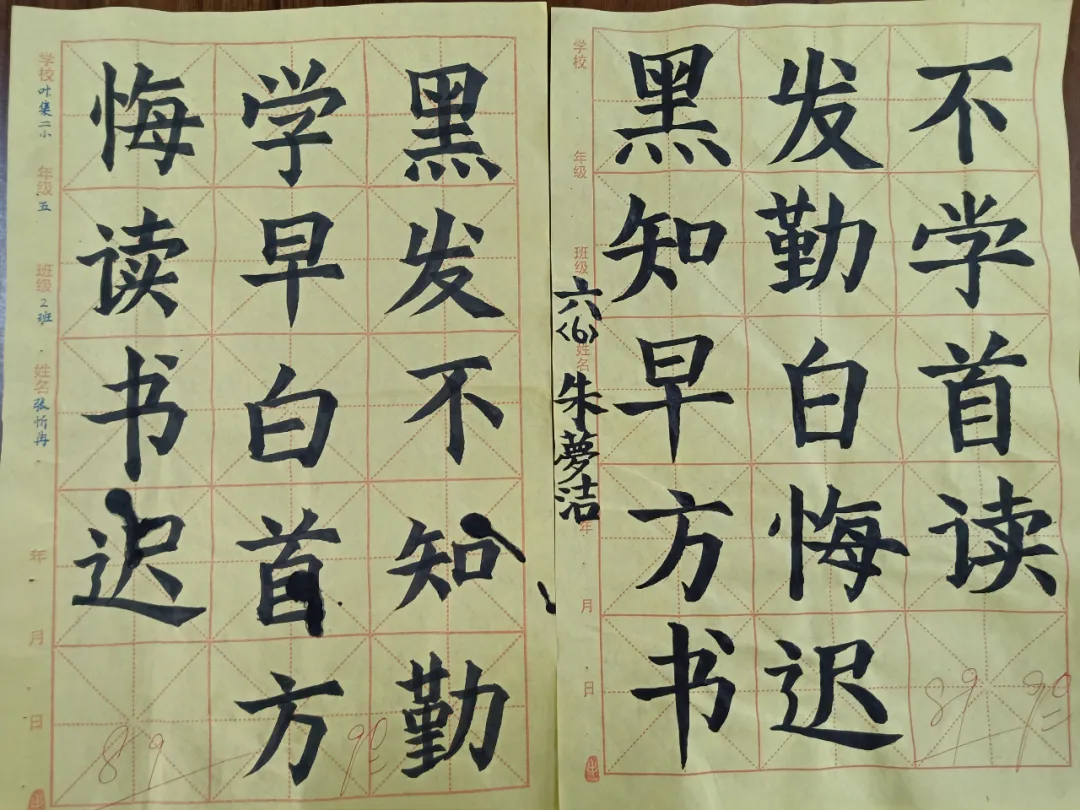 黑发不知勤
学早白首方
悔读书迟
学校叶集二小 年级五 班级2班 姓名张忻冉 年 月 日
89 90
黑发不
知勤学
早白首
方悔读
书迟
学校 年级 班级 姓名 年 月 日
六〈6〉朱夢洁
89 90